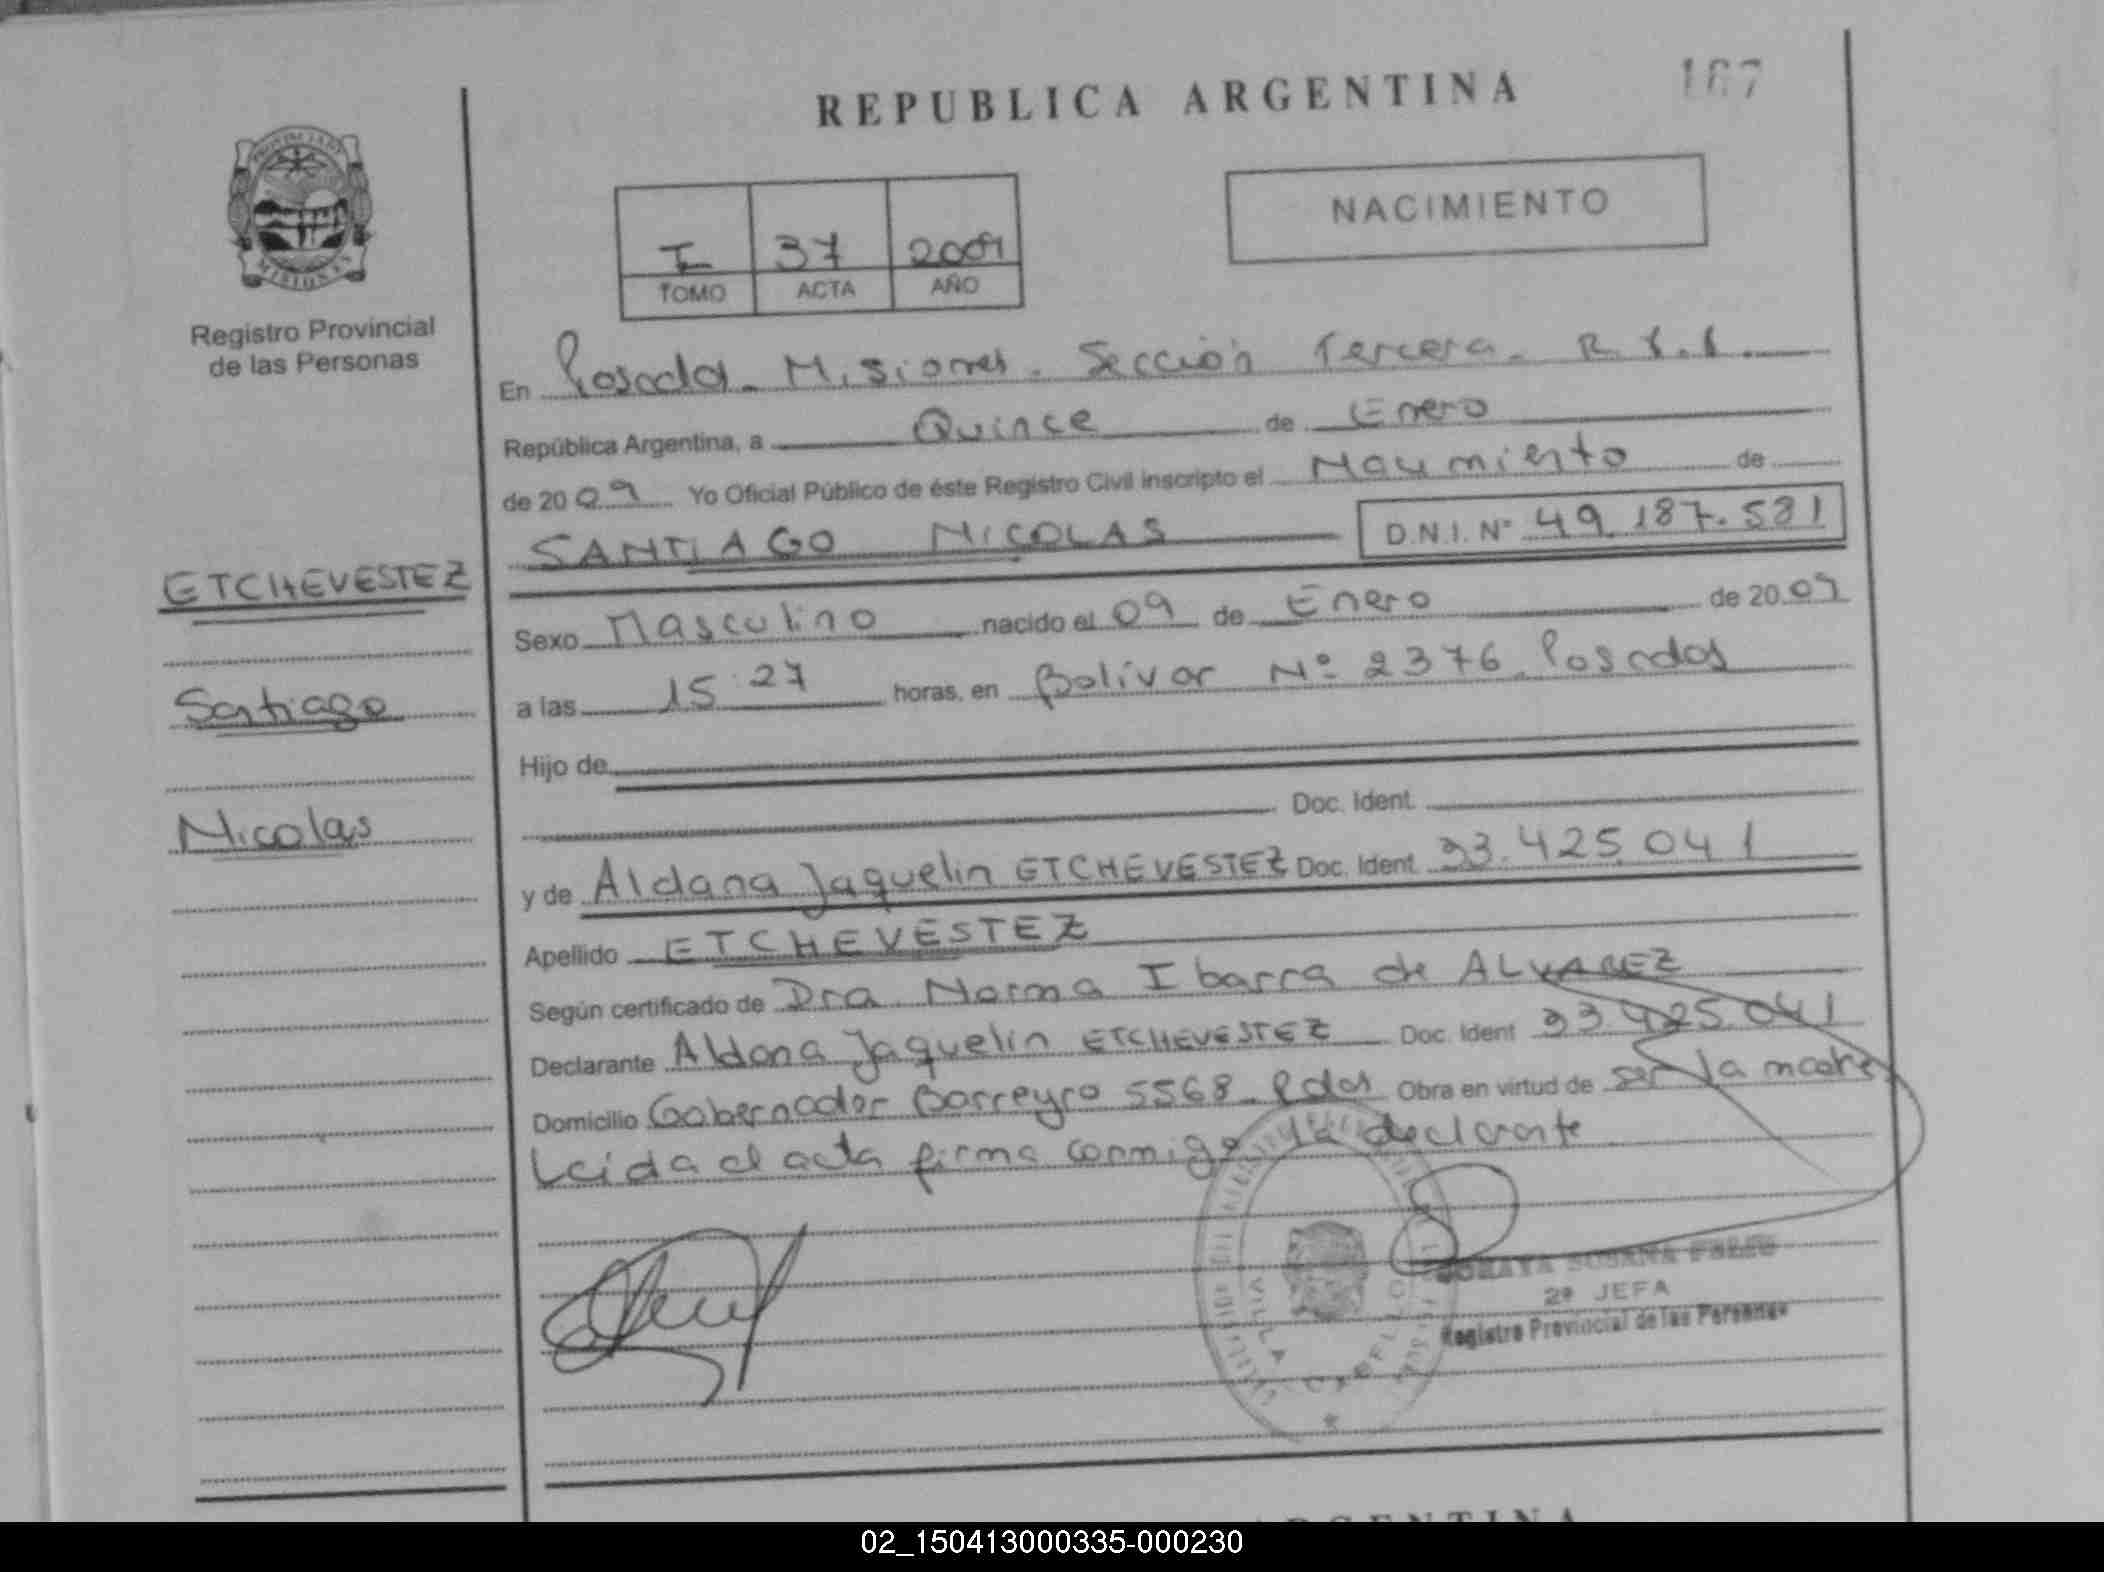 REPUBLICA ARGENTINA
187
PROVINCIA DE
MISIONES
Registro Provincial
de las Personas
NACIMIENTO
I 37 2009
TOMO ACTA AÑO
En Posadas - Misiones. Sección Tercera -
República Argentina, a Quince de Enero
de 2009 Yo Oficial Público de éste Registro Civil inscripto el Nacimiento de
SANTIAGO NICOLAS D.N.I. Nº 49.187.581
ETCHEVESTEZ
Santiago
Nicolas
Sexo Masculino nacido el 09 de Enero de 2009
a las 15:27 horas, en Bolivar Nº 2376. Posadas
Hijo de
Doc. Ident.
y de Aldana Jaquelin ETCHEVESTEZ Doc. Ident. 33.425.041
Apellido ETCHEVESTEZ
Según certificado de Dra Norma Ibarra de ALVAREZ
Declarante Aldana Jaquelin ETCHEVESTEZ Doc. Ident 33.425.041
Domicilio Gobernador Barreyro 5568. Pdas Obra en virtud de ser la madre
Leida el acta firma conmigo la declarante
VILLA CABELLO
SUSANA
2ª JEFA
Registro Provincial de las Personas
ARGENTINA
02_150413000335-000230